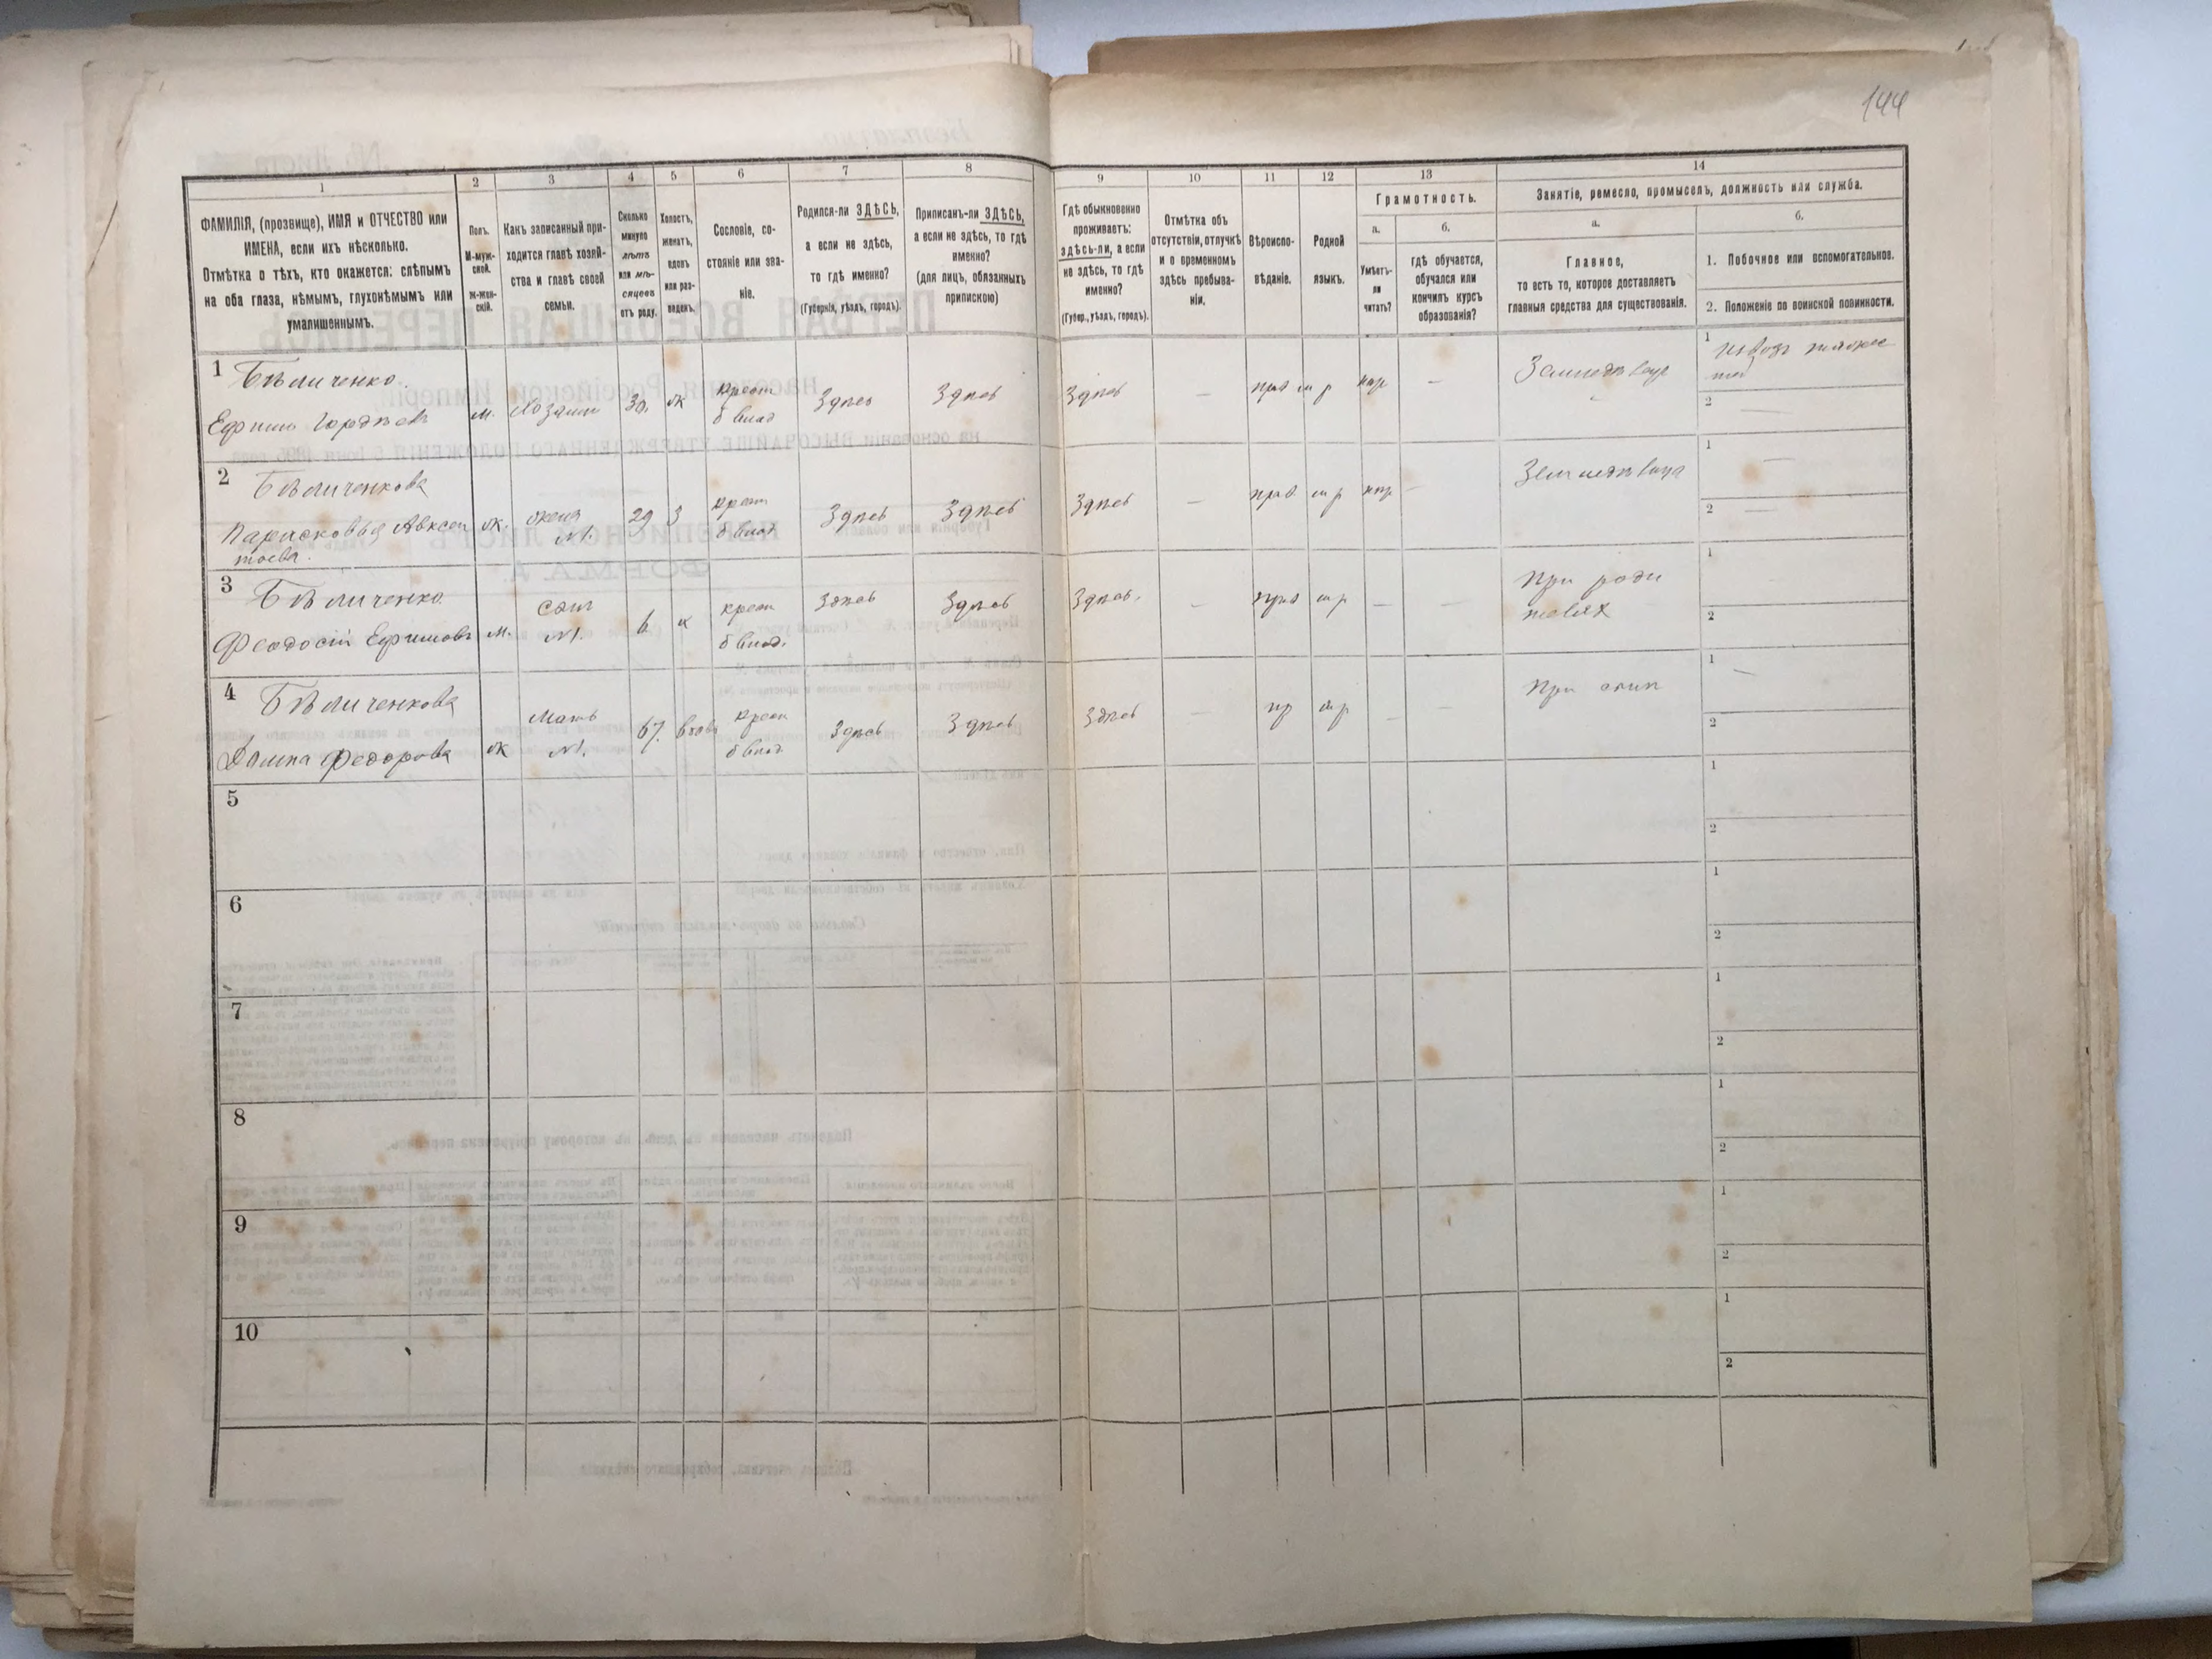 144
1
2
3
4
5
6
7
8
9
10
11
12
13
14
ФАМИЛІЯ, (прозвище), ИМЯ и ОТЧЕСТВО или
ИМЕНА, если ихъ нѣсколько.
Отмѣтка о тѣхъ, кто окажется: слѣпымъ
на оба глаза, нѣмымъ, глухонѣмымъ или
умалишеннымъ.
Полъ.
М-муж-
ской.
Ж-жен-
скій.
Какъ записанный при-
ходится главѣ хозяй-
ства и главѣ своей
семьи.
Сколько
минуло
лѣтъ
или мѣ-
сяцевъ
отъ роду.
Холостъ,
женатъ,
вдовъ
или раз-
веденъ.
Сословіе, со-
стояніе или зва-
ніе.
Родился-ли ЗДѢСЬ,
а если не здѣсь,
то гдѣ именно?
(Губернія, уѣздъ, городъ).
Приписанъ-ли ЗДѢСЬ,
а если не здѣсь, то гдѣ
именно?
(для лицъ, обязанныхъ
припискою)
Гдѣ обыкновенно
проживаетъ:
здѣсь-ли, а если
не здѣсь, то гдѣ
именно?
(Губер., уѣздъ, городъ).
Отмѣтка объ
отсутствіи, отлучкѣ
и о временномъ
здѣсь пребыва-
ніи.
Вѣроиспо-
вѣданіе.
Родной
языкъ.
Грамотность.
а.
Умѣетъ-
ли
читать?
б.
гдѣ обучается,
обучался или
кончилъ курсъ
образованія?
Занятіе, ремесло, промыселъ, должность или служба.
а.
Главное,
то есть то, которое доставляетъ
главныя средства для существованія.
б.
1. Побочное или вспомогательное.
2. Положеніе по воинской повинности.
1 Бѣличенко
Ефимъ Гордѣевъ
м. Хозяин 30. ж крест
б влад Здѣсь Здѣсь Здѣсь — прав м р нгр — 1
2 —
2 Бѣличенкова
Парасковья Авксен
тьева.
ж. жена
N1. 29 З крест
б влад Здѣсь Здѣсь Здѣсь — прав м р нгр — 1 —
2 —
3 Бѣличенко
Феодосій Ефимовъ м. Сын
N1. 6 х крест
б влад. Здѣсь Здѣсь Здѣсь. — прав м р — — При роди
телях 1
2
4 Бѣличенкова
Домна Федорова ж Мать
N1. 67. вдова крест
б влад Здѣсь Здѣсь Здѣсь — пр м р — — При сын 1 —
2
5
1
2
6
1
2
7
1
2
8
1
2
9
1
2
10
1
2